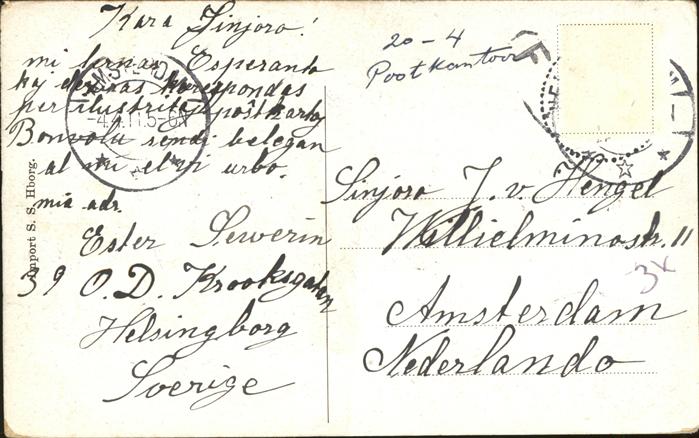 Kara Sinjoro!
mi lernas Esperanto
kaj deziras korespondas
per ilustritaj poŝtkartoj
Bonvolu sendi belegan
al mi el vi urbo.
mia adr.
Ester Sewerin
39 O.D. Krooksgatan
Helsingborg
Sverige
Import S. S. Hborg.
AMSTERDAM
-4.4.11.5-6
20-4
Postkantoor
Sinjoro J. v. Hengel
Willielminastr. 11
3x
Amsterdam
Nederlando